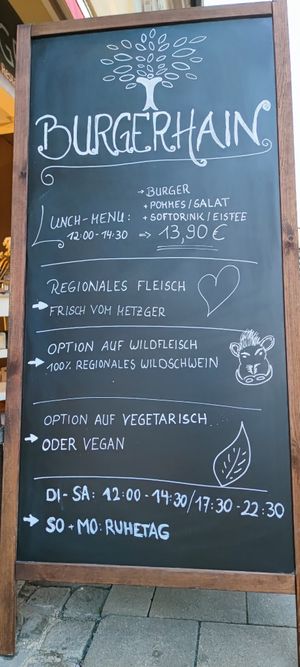 BURGERHAIN
→ BURGER
+ POMMES/SALAT
LUNCH-MENU: + SOFTDRINK/EISTEE
12:00-14:30 → 13,90 €
REGIONALES FLEISCH
→ FRISCH VOM METZGER
OPTION AUF WILDFLEISCH
→ 100% REGIONALES WILDSCHWEIN
OPTION AUF VEGETARISCH...
→ ODER VEGAN
DI - SA: 12:00 - 14:30/17:30 - 22:30
→ SO + MO: RUHETAG